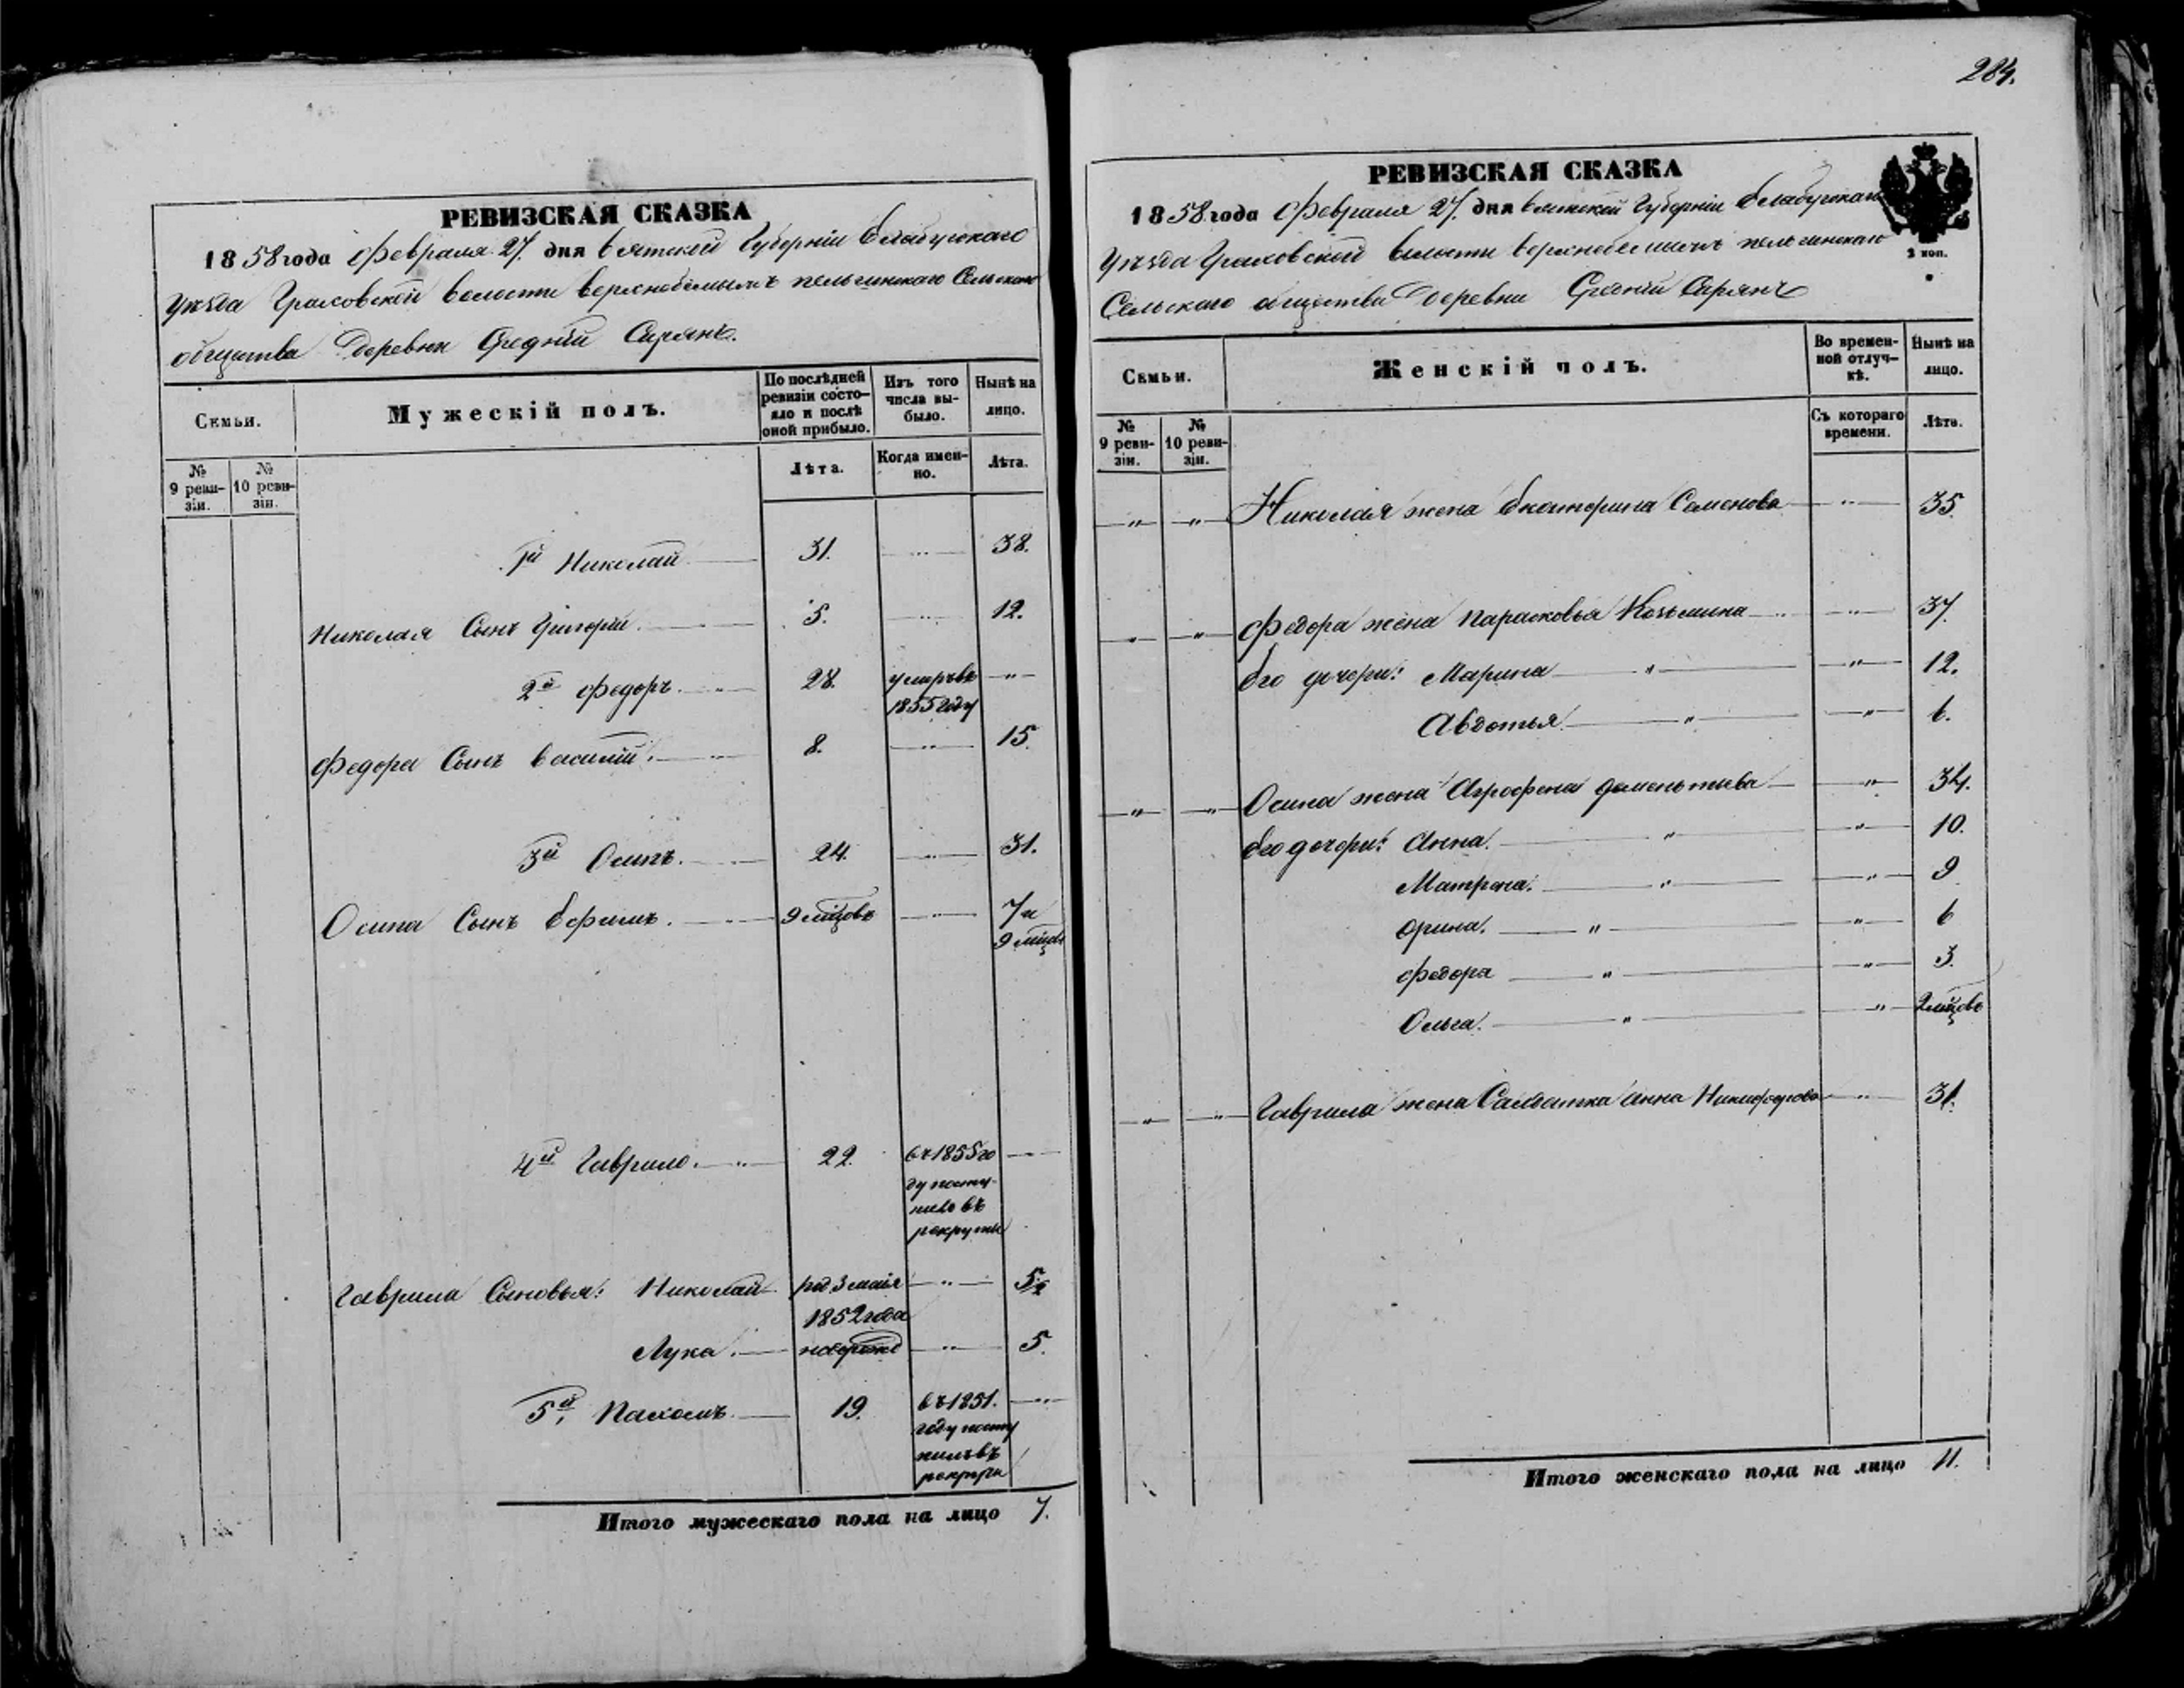 РЕВИЗСКАЯ СКАЗКА
1858 года Февраля 27. дня Вятской Губерніи Елабугскаго
Уѣзда Граховской волости Сельскаго
общества Деревни Средній Сарянъ.
Семьи.
Мужескій полъ.
По послѣдней ревизіи состояло и послѣ оной прибыло.
Изъ того числа выбыло.
Нынѣ на лицо.
№ 9 ревизіи.
№ 10 ревизіи.
Лѣта.
Когда именно.
Лѣта.
1й Николай 31. 38.
Николая Сынъ Григорій. 5. 12.
2й Федоръ. 28. умеръ въ
1855 году
Федора Сынъ Василій. 8. 15.
3й Осипъ. 24. 31.
Осипа Сынъ Ефимъ. 9 мѣцовъ 7 и
9 мѣцов
4й Гаврило. 22. въ 1855 го
ду посту-
пило въ
рекруты
Гаврила Сыновья: Николай род 3 маія 5½
1852 года
Лука. 5.
5й Пахомъ. 19. въ 1851.
году посту
пилъ въ
рекруты
Итого мужескаго пола на лицо 7.
284.
РЕВИЗСКАЯ СКАЗКА
1858 года Февраля 27. дня Вятской Губерніи Елабугскаго
Уѣзда Граховской волости
Сельскаго общества Деревни Средній Сарянъ
2 коп.
Семьи.
Женскій полъ.
Во временной отлучкѣ.
Нынѣ на лицо.
№ 9 ревизіи.
№ 10 ревизіи.
Съ котораго времени.
Лѣта.
Николая жена Екатерина Семенова 35.
Федора жена Парасковья Козьмина 37.
Его дочери: Марина 12.
Авдотья 6.
Осипа жена Агрофена Деменьтива 34.
Его дочери: Анна. 10.
Матрена. 9
Орина. 6
Федора 3.
Ольга. 2 мѣцовъ
Гаврила жена Салдатка Анна Никифорова 31.
Итого женскаго пола на лицо 11.